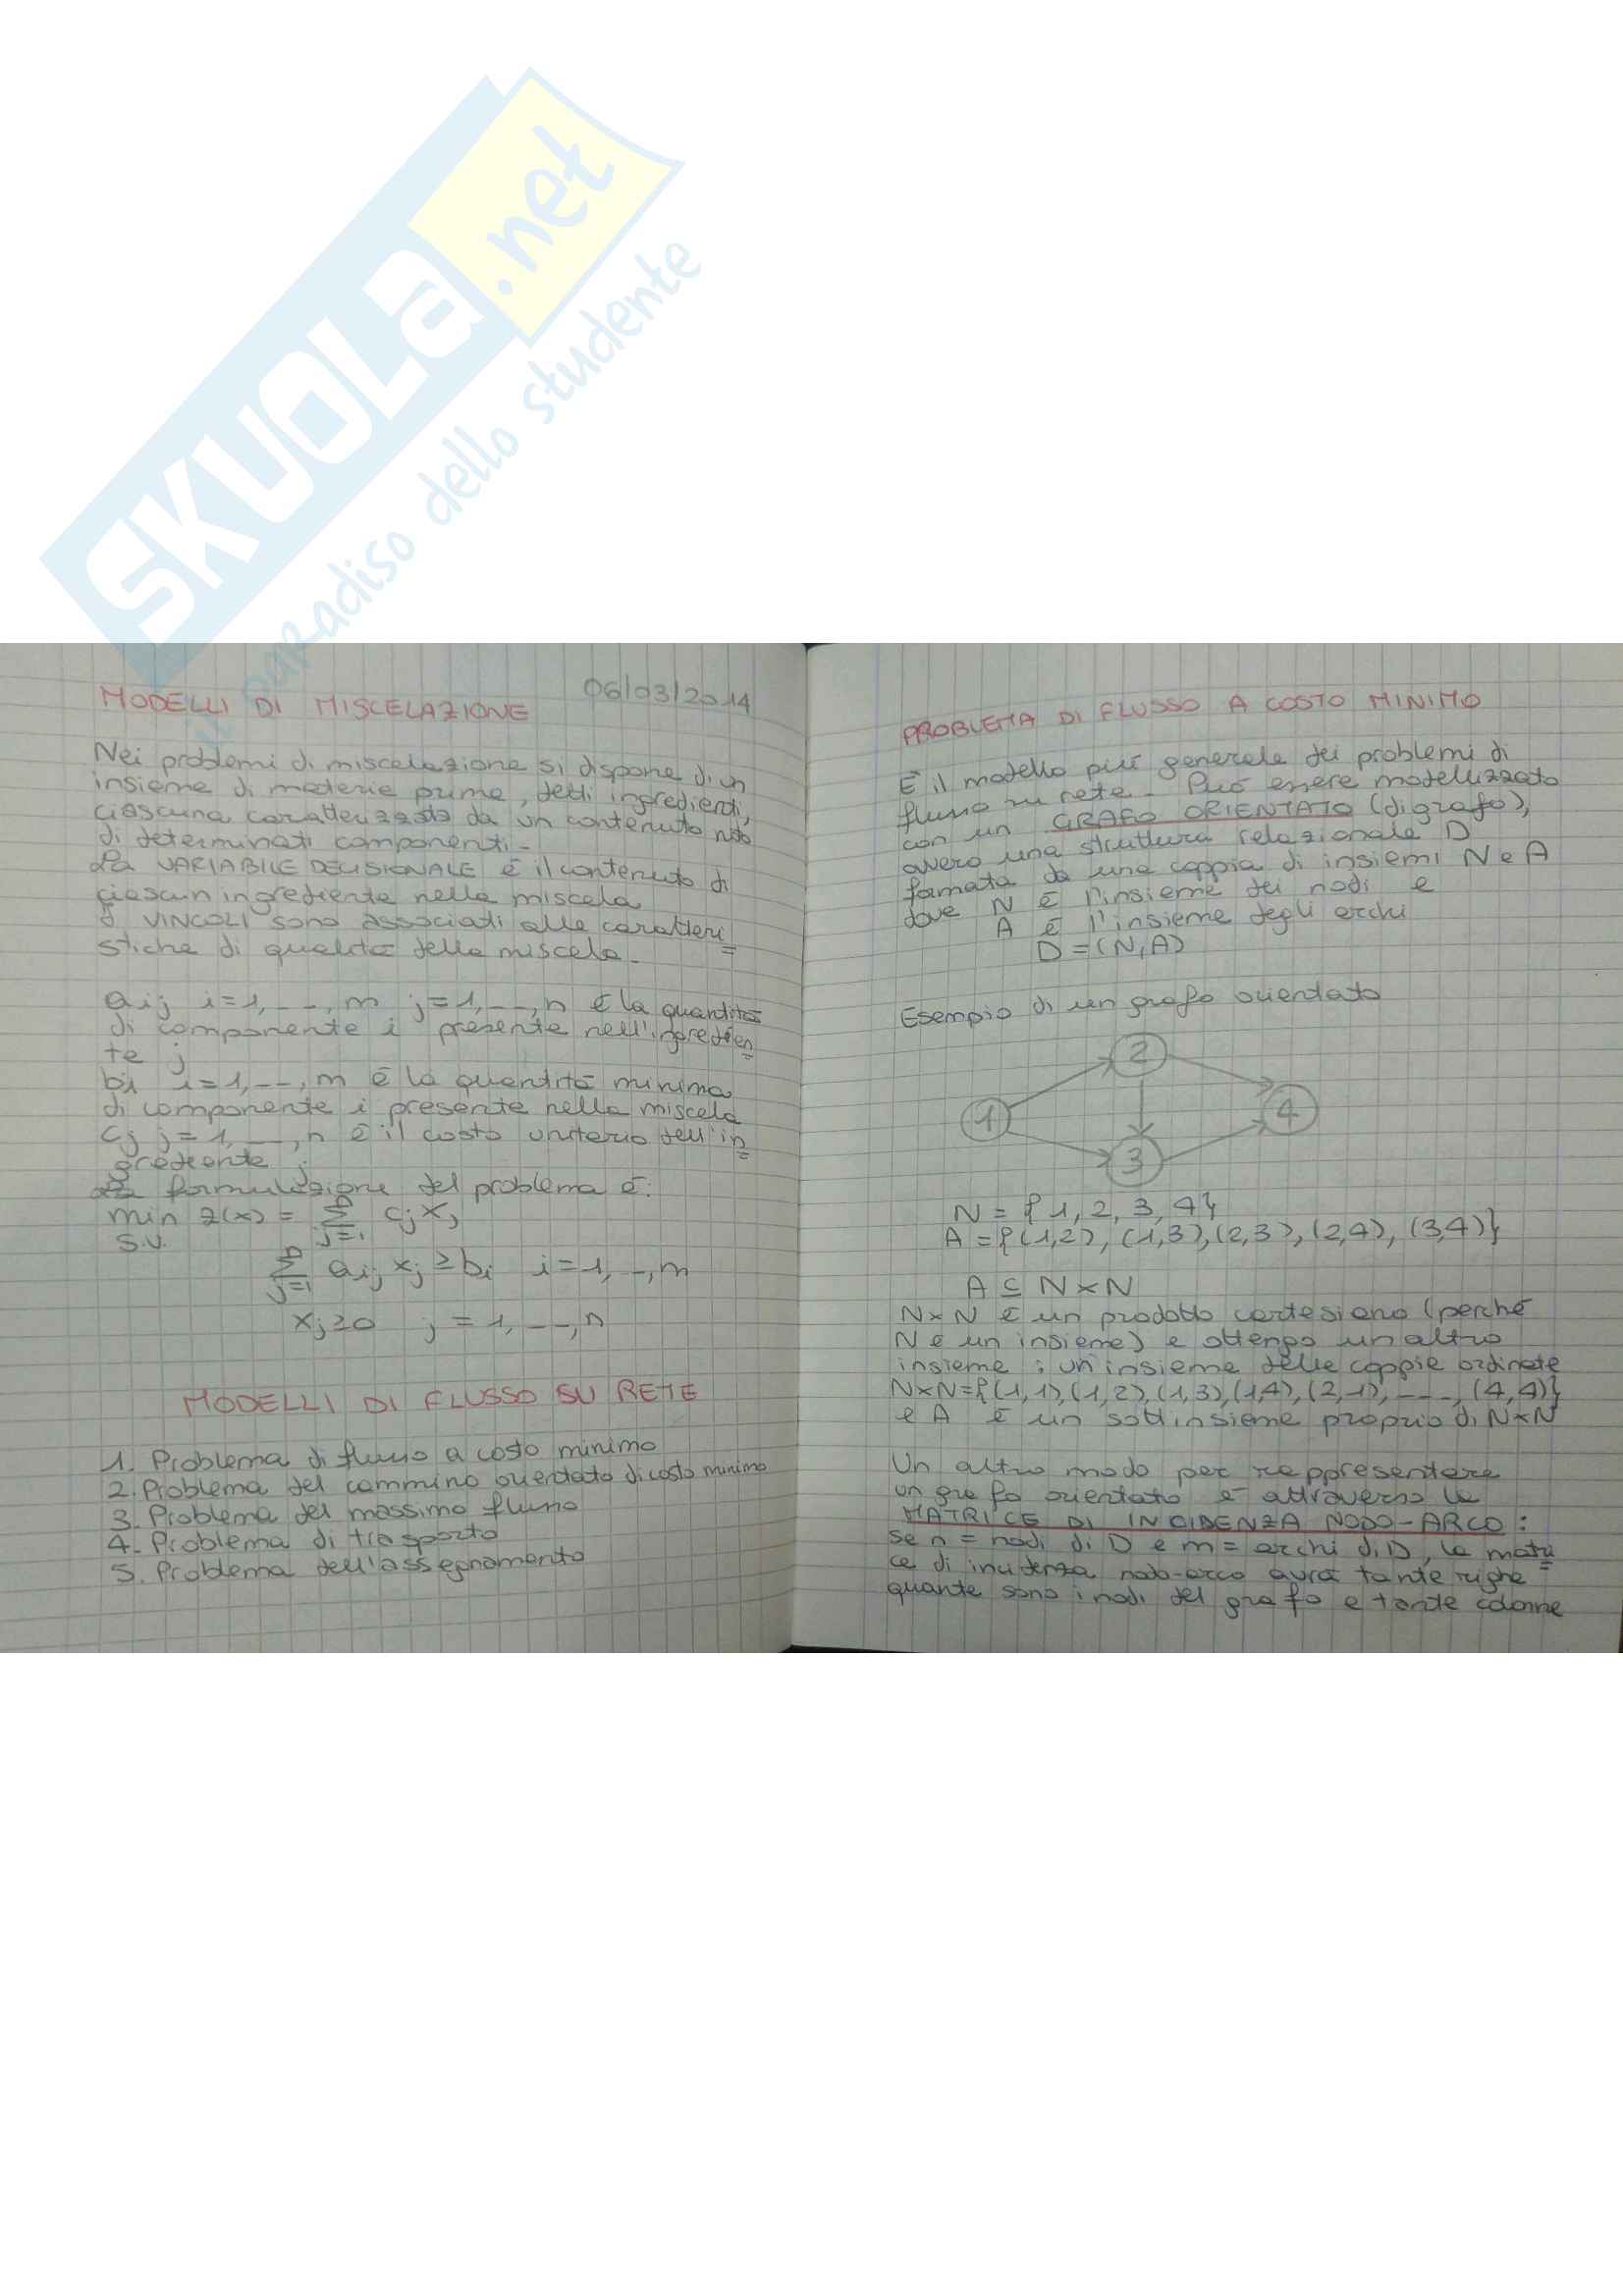 SKUOLA.net
paradiso dello studente
06/03/2014
MODELLI DI MISCELAZIONE
Nei problemi di miscelazione si dispone di un
insieme di materie prime, detti ingredienti,
ciascuna caratterizzata da un contenuto noto
di determinati componenti.
La VARIABILE DECISIONALE è il contenuto di
ciascun ingrediente nella miscela
I VINCOLI sono associati alle caratteri=
stiche di qualità della miscela.
aij i=1,---,m j=1,---,n è la quantità
di componente i presente nell'ingredien=
te j
bi i=1,--,m è la quantità minima
di componente i presente nella miscela
cj j=1,---,n è il costo unitario dell'in=
grediente j
La formulazione del problema è:
min z(x) = n∑j=1 cj xj
s.v.
n∑j=1 aij xj ≥ bi i=1,--,m
xj ≥ 0 j=1,---,n
MODELLI DI FLUSSO SU RETE
1. Problema di flusso a costo minimo
2. Problema del cammino orientato di costo minimo
3. Problema del massimo flusso
4. Problema di trasporto
5. Problema dell'assegnamento
PROBLEMA DI FLUSSO A COSTO MINIMO
È il modello più generale dei problemi di
flusso su rete. Può essere modellizzato
con un GRAFO ORIENTATO (digrafo),
ovvero una struttura relazionale D
formata da una coppia di insiemi N e A
dove N è l'insieme dei nodi e
A è l'insieme degli archi
D=(N,A)
Esempio di un grafo orientato
2
1
4
3
N = {1, 2, 3, 4}
A = {(1,2), (1,3), (2,3), (2,4), (3,4)}
A ⊆ N×N
N×N è un prodotto cartesiano (perché
N è un insieme) e ottengo un altro
insieme : un insieme delle coppie ordinate
N×N={(1,1),(1,2),(1,3),(1,4),(2,1),----,(4,4)}
e A è un sottinsieme proprio di N×N
Un altro modo per rappresentare
un grafo orientato è attraverso la
MATRICE DI INCIDENZA NODO-ARCO:
se n = nodi di D e m = archi di D, la matri=
ce di incidenza nodo-arco avrà tante righe
quante sono i nodi del grafo e tante colonne